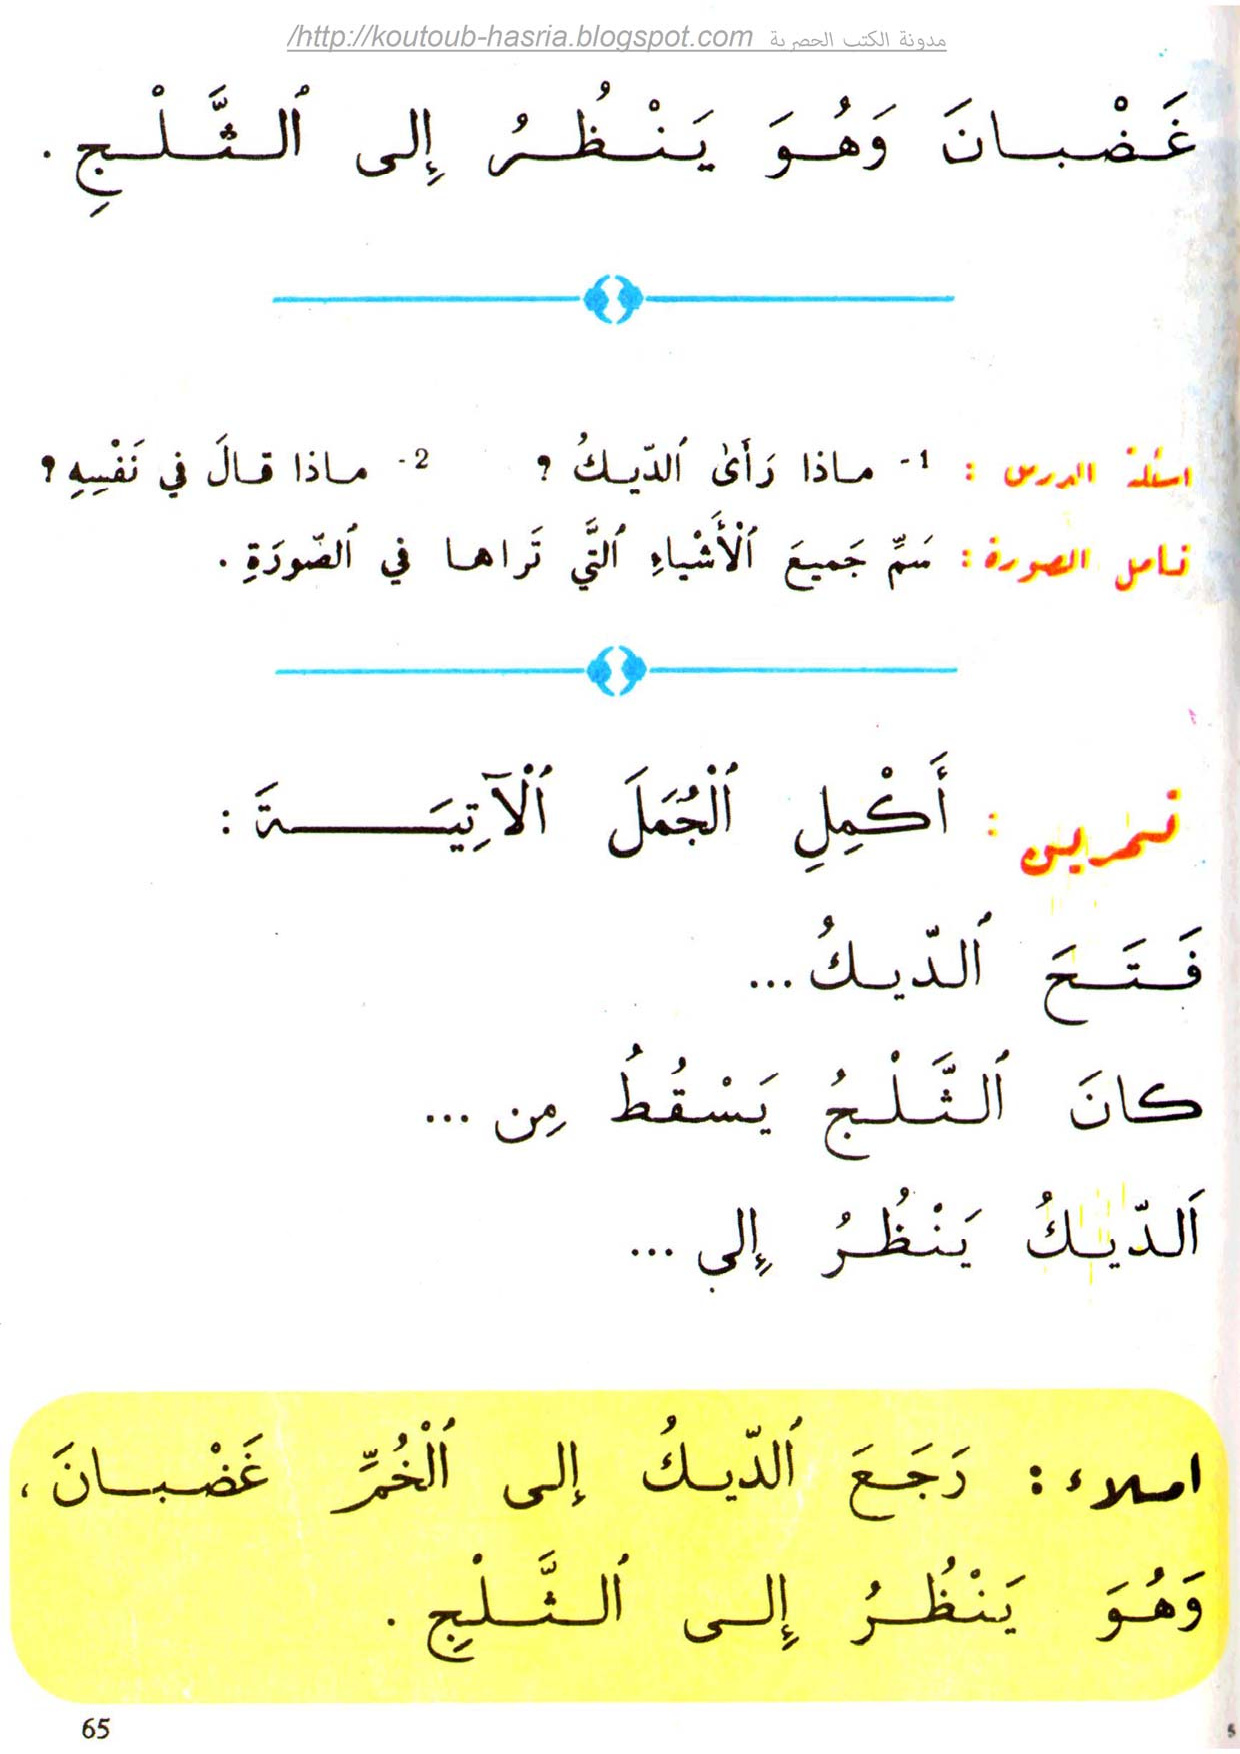 مدونة الكتب الحصرية http://koutoub-hasria.blogspot.com/
غَضْبانَ وَهُوَ يَنْظُرُ إِلى ٱلثَّلْجِ .
اسئلة الدرس : 1- ماذا رَأَىٰ ٱلدّيكُ ؟ 2- ماذا قالَ في نَفْسِهِ ؟
تامل الصورة : سَمِّ جَميعَ ٱلْأَشْياءِ ٱلتَّي تَراها في ٱلصّورَةِ .
تمرين : أَكْمِلِ ٱلْجُمَلَ ٱلْآتِيَةَ :
فَتَحَ ٱلدّيكُ ...
كانَ ٱلثَّلْجُ يَسْقُطُ مِن ...
اَلدّيكُ يَنْظُرُ إِلى ...
املاء : رَجَعَ ٱلدّيكُ إلى ٱلْخُمِّ غَضْبانَ ،
وَهُوَ يَنْظُرُ إِلى ٱلثَّلْجِ .
65
5